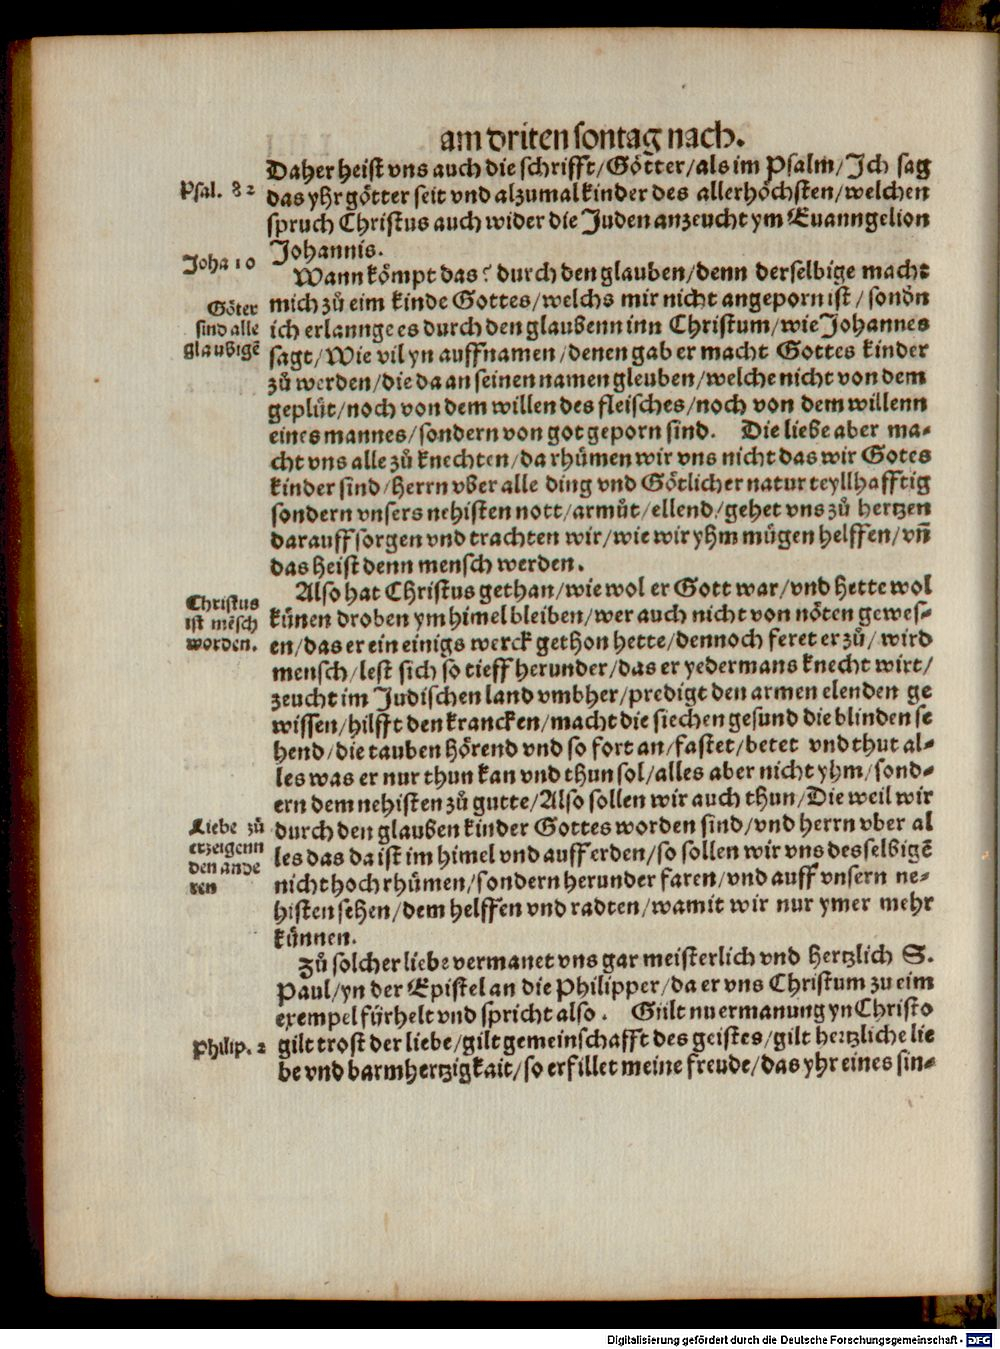 am driten sontag nach.
Daher heist vns auch die schrifft/Götter/als im Psalm/Ich sag
Psal. 82
das yhr götter seit vnd alzumal kinder des allerhöchsten/welchen
spruch Christus auch wider die Juden anzeucht ym Euanngelion
Joha 10
Johannis.
Wann kömpt das? durch den glauben/denn derselbige macht
Göter
sind alle
glaubigē
mich zů eim kinde Gottes/welchs mir nicht angeporn ist/sondn̄
ich erlannge es durch den glaubenn inn Christum/wie Johannes
sagt/Wie vil yn auffnamen/denen gab er macht Gottes kinder
zů werden/die da an seinen namen gleuben/welche nicht von dem
geplüt/noch von dem willen des fleisches/noch von dem willenn
eines mannes/sondern von got geporn sind. Die liebe aber ma-
cht vns alle zů knechten/da rhümen wir vns nicht das wir Gotes
kinder sind/herrn vber alle ding vnd Götlicher natur teyllhafftig
sondern vnsers nehisten nott/armůt/ellend/gehet vns zů hertzen
darauff sorgen vnd trachten wir/wie wir yhm mügen helffen/vn̄
das heist denn mensch werden.
Christus
ist mēsch
worden.
Also hat Christus gethan/wie wol er Gott war/vnd hette wol
künen droben ym himel bleiben/wer auch nicht von nöten gewes-
en/das er ein einigs werck gethon hette/dennoch feret er zů/wird
mensch/lest sich so tieff herunder/das er yedermans knecht wirt/
zeucht im Judischen land vmbher/predigt den armen elenden ge
wissen/hilfft den krancken/macht die siechen gesund die blinden se
hend/die tauben hörend vnd so fort an/fastet/betet vnd thut al-
les was er nur thun kan vnd thun sol/alles aber nicht yhm/sond-
ern dem nehisten zů gutte/Also sollen wir auch thun/Die weil wir
Liebe zů
erzeigenn
den ande
ren
durch den glauben kinder Gottes worden sind/vnd herrn vber al
les das da ist im himel vnd auff erden/so sollen wir vns desselbigē
nicht hoch rhümen/sondern herunder faren/vnd auff vnsern ne-
histen sehen/dem helffen vnd radten/wamit wir nur ymer mehr
künnen.
Zů solcher liebe vermanet vns gar meisterlich vnd hertzlich S.
Paul/yn der Epistel an die Philipper/da er vns Christum zu eim
exempel fürhelt vnd spricht also. Gült nu ermanung yn Christo
Philip. 2
gilt trost der liebe/gilt gemeinschafft des geistes/gilt hertzliche lie
be vnd barmhertzigkait/so erfillet meine freude/das yhr eines sin-
Digitalisierung gefördert durch die Deutsche Forschungsgemeinschaft - DFG